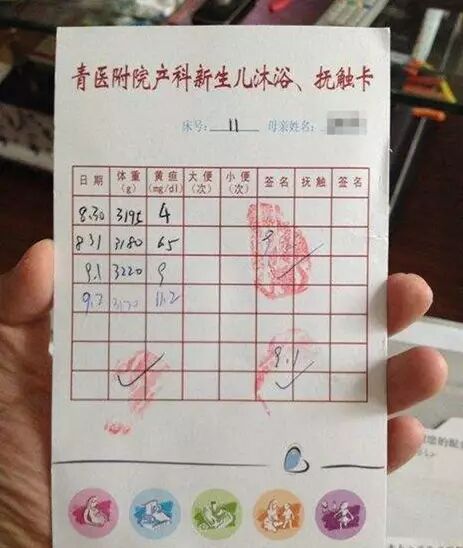 青医附院产科新生儿沐浴、抚触卡
床号: 11 母亲姓名:
日期 体重(g) 黄疸(mg/dl) 大便(次) 小便(次) 签名 抚触 签名
8.30 3195 4
8.31 3180 6.5
9.1 3220 9
9.2 3170 11.2
9.1